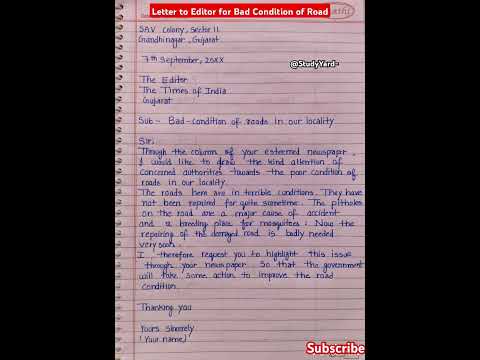 Letter to Editor for Bad Condition of Road
SAV Colony, Sector 11
Gandhinagar, Gujarat
7th September, 20XX
@StudyYard-
The Editor
The Times of India
Gujarat
Sub:- Bad-Condition of roads in our locality
Sir,
Through the column of your esteemed newspaper,
I would like to draw the kind attention of
concerned authorities towards the poor condition of
roads in our locality.
The roads here are in terrible conditions. They have
not been repaired for quite sometime. The potholes
on the road are a major cause of accident
and a breeding place for mosquitoes. Now the
repairing of the damged road is badly needed
very soon.
I therefore request you to highlight this issue
through your newspaper so that the government
will take some action to improve the road
condition.
Thanking you
Yours sincerely
(Your name)
Subscribe